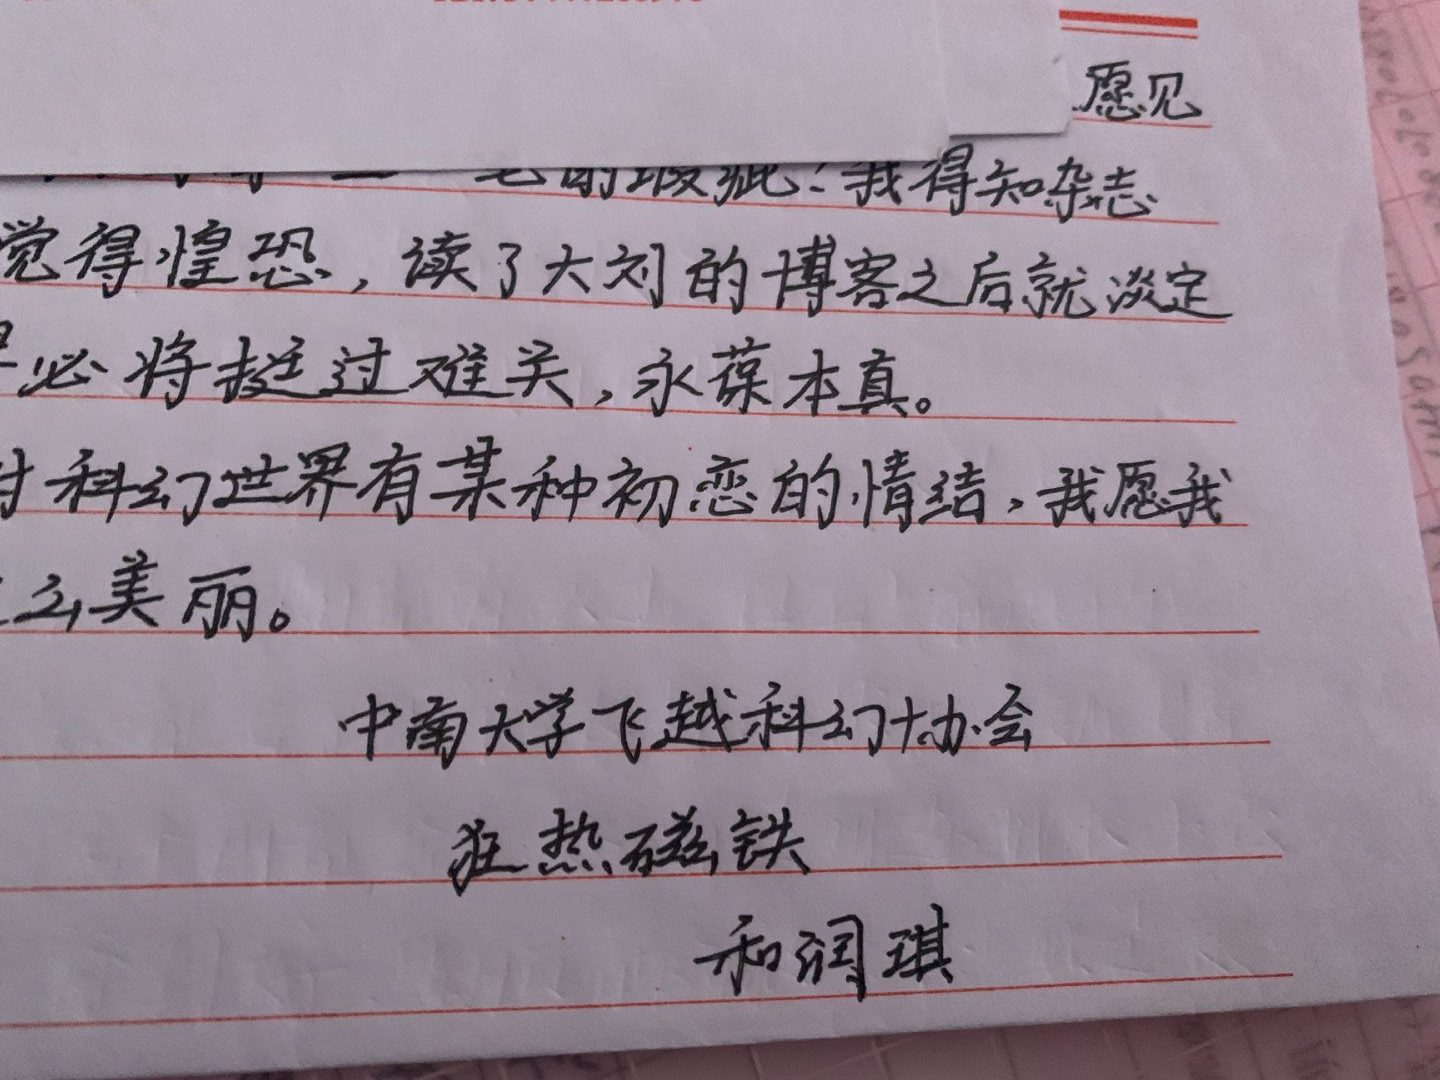 愿见
的瑕疵！我得知杂志
觉得惶恐，读了大刘的博客之后就淡定
必将挺过难关，永葆本真。
对科幻世界有某种初恋的情结，我愿我
么美丽。
中南大学飞越科幻协会
狂热磁铁
和润琪